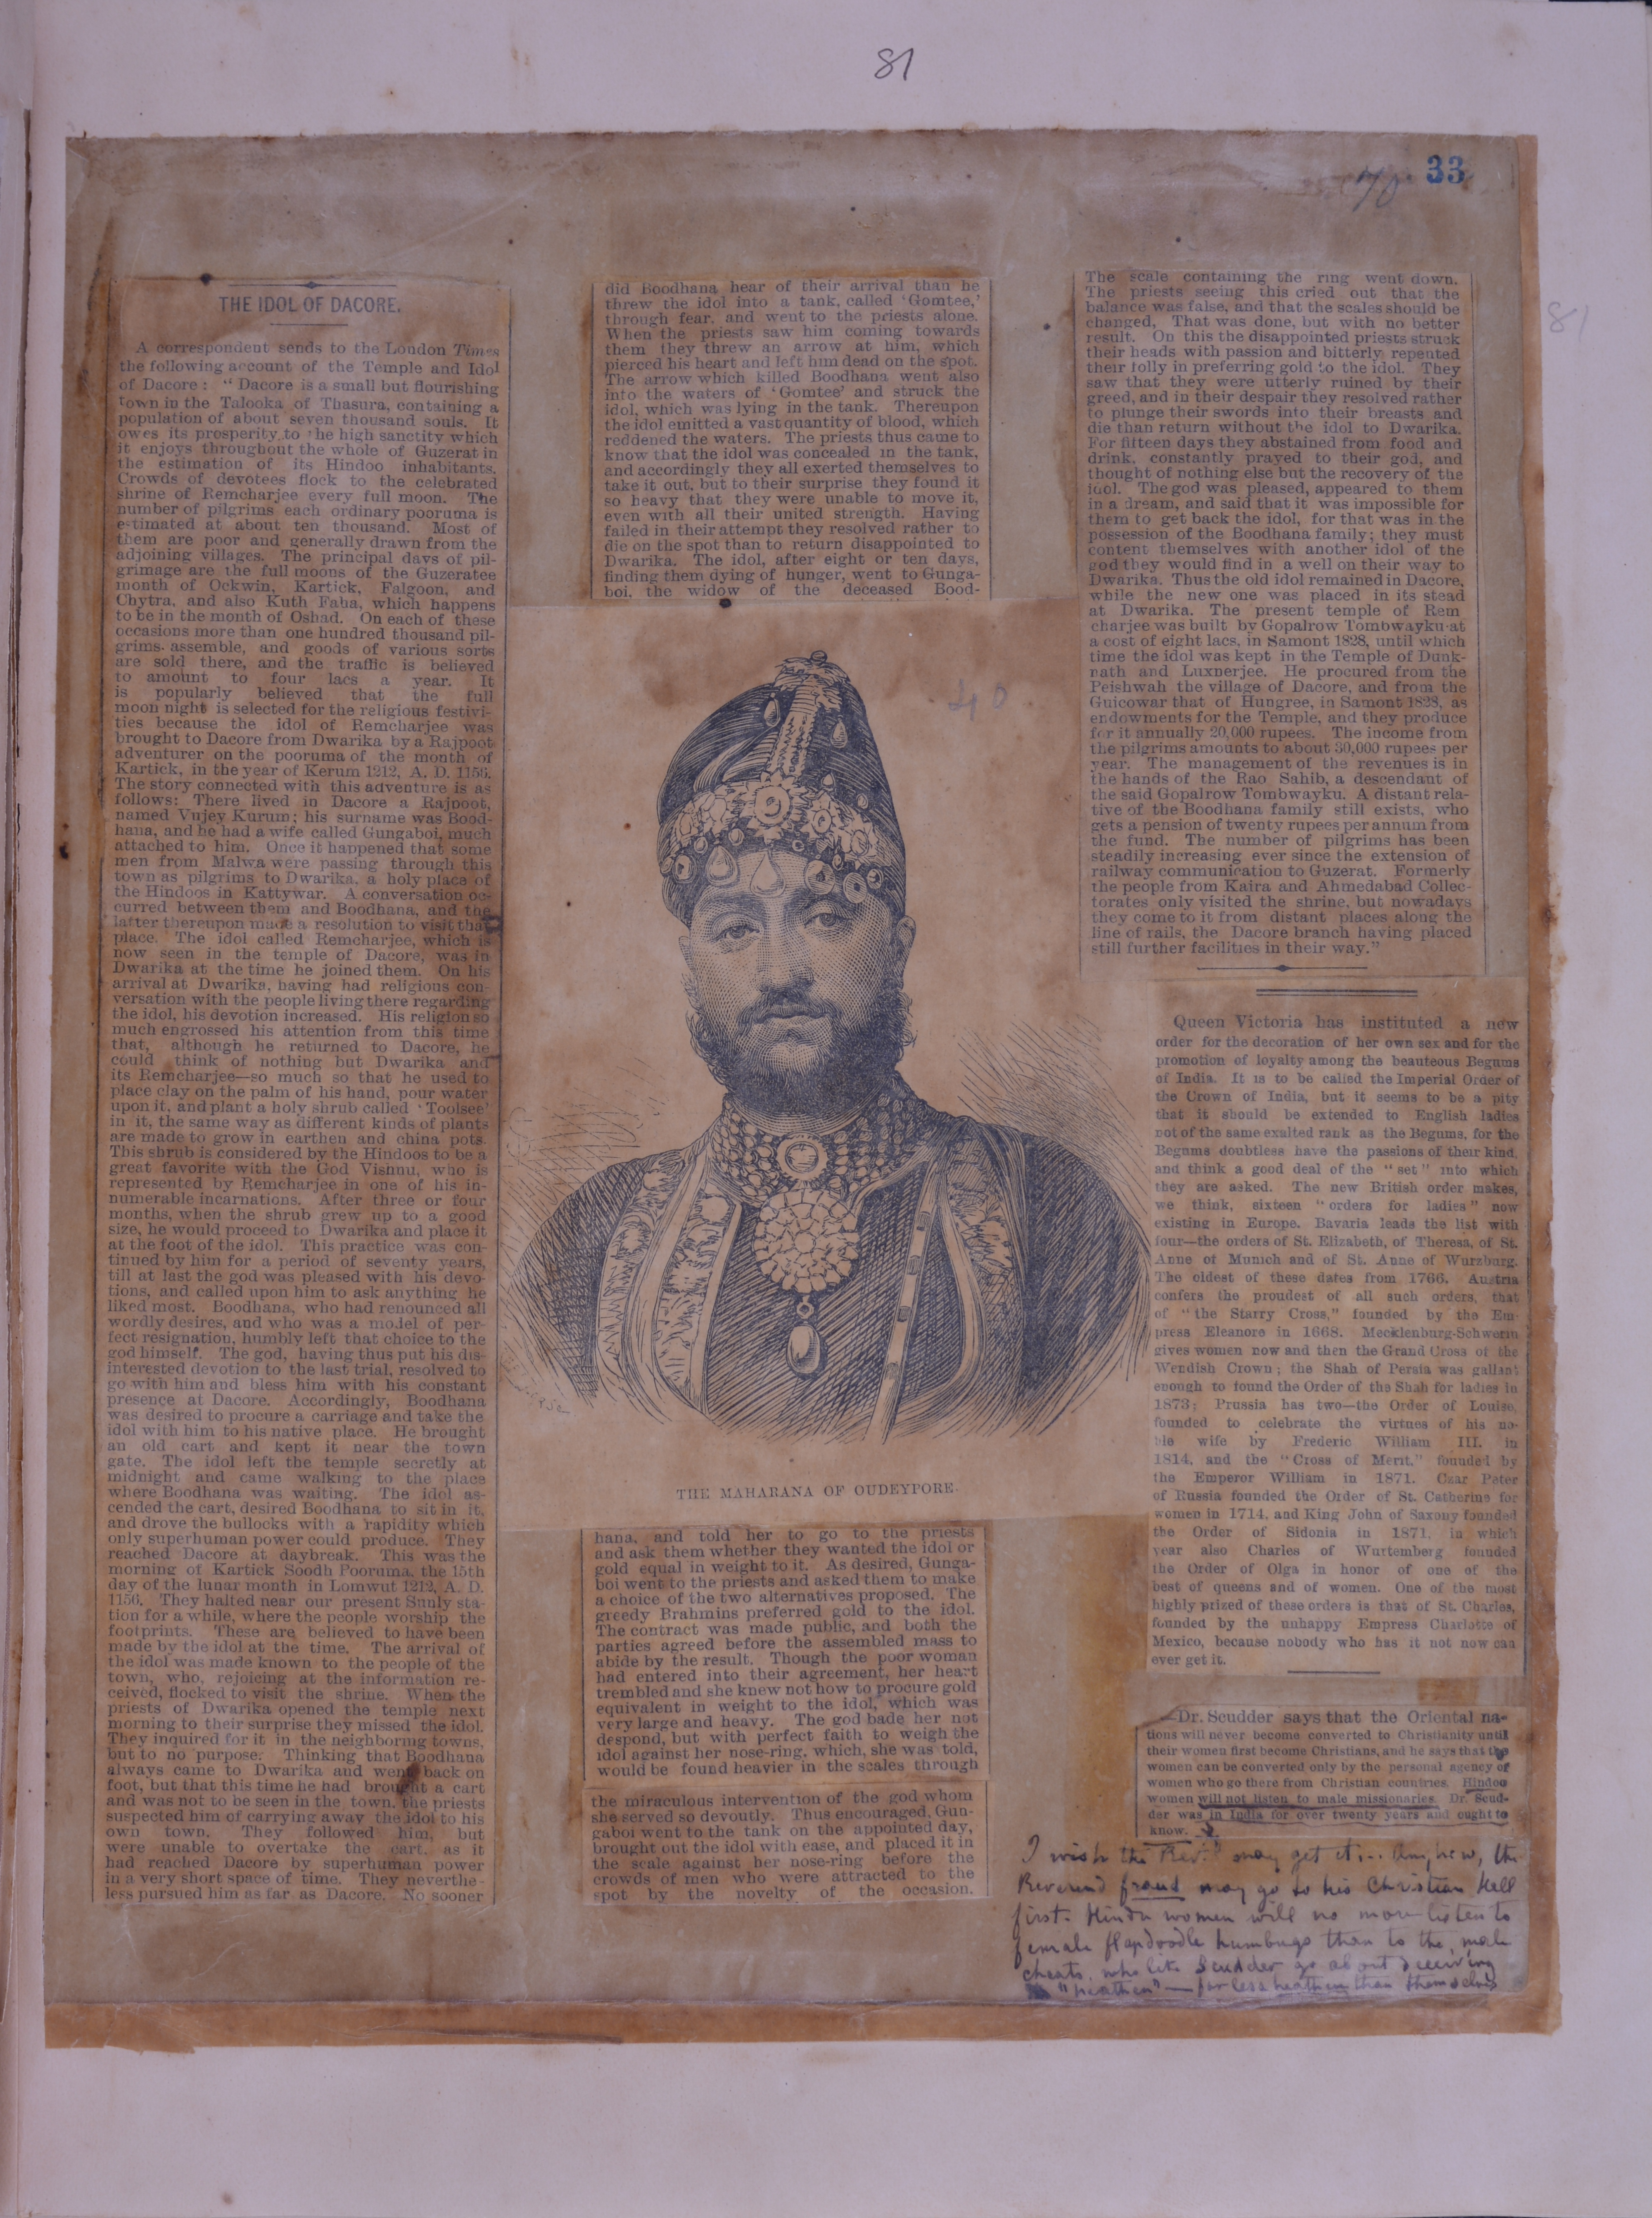 81
70 33
THE IDOL OF DACORE.
A correspondent sends to the London Times
the following account of the Temple and Idol
of Dacore: "Dacore is a small but flourishing
town in the Talooka of Thasura, containing a
population of about seven thousand souls. It
owes its prosperity to the high sanctity which
it enjoys throughout the whole of Guzerat in
the estimation of its Hindoo inhabitants.
Crowds of devotees flock to the celebrated
shrine of Remcharjee every full moon. The
number of pilgrims each ordinary pooruma is
estimated at about ten thousand. Most of
them are poor and generally drawn from the
adjoining villages. The principal days of pil-
grimage are the full moons of the Guzeratee
month of Ockwin, Kartick, Falgoon, and
Chytra, and also Kuth Faha, which happens
to be in the month of Oshad. On each of these
occasions more than one hundred thousand pil-
grims assemble, and goods of various sorts
are sold there, and the traffic is believed
to amount to four lacs a year. It
is popularly believed that the full
moon night is selected for the religious festivi-
ties because the idol of Remcharjee was
brought to Dacore from Dwarika by a Rajpoot
adventurer on the pooruma of the month of
Kartick, in the year of Kerum 1212, A. D. 1156.
The story connected with this adventure is as
follows: There lived in Dacore a Rajpoot,
named Vujey Kurum; his surname was Bood-
hana, and he had a wife called Gungaboi, much
attached to him. Once it happened that some
men from Malwa were passing through this
town as pilgrims to Dwarika, a holy place of
the Hindoos in Kattywar. A conversation oc-
curred between them and Boodhana, and the
latter thereupon made a resolution to visit that
place. The idol called Remcharjee, which is
now seen in the temple of Dacore, was in
Dwarika at the time he joined them. On his
arrival at Dwarika, having had religious con-
versation with the people living there regarding
the idol, his devotion increased. His religion so
much engrossed his attention from this time
that, although he returned to Dacore, he
could think of nothing but Dwarika and
its Remcharjee—so much so that he used to
place clay on the palm of his hand, pour water
upon it, and plant a holy shrub called 'Toolsee'
in it, the same way as different kinds of plants
are made to grow in earthen and china pots.
This shrub is considered by the Hindoos to be a
great favorite with the God Vishnu, who is
represented by Remcharjee in one of his in-
numerable incarnations. After three or four
months, when the shrub grew up to a good
size, he would proceed to Dwarika and place it
at the foot of the idol. This practice was con-
tinued by him for a period of seventy years,
till at last the god was pleased with his devo-
tions, and called upon him to ask anything he
liked most. Boodhana, who had renounced all
wordly desires, and who was a model of per-
fect resignation, humbly left that choice to the
god himself. The god, having thus put his dis-
interested devotion to the last trial, resolved to
go with him and bless him with his constant
presence at Dacore. Accordingly, Boodhana
was desired to procure a carriage and take the
idol with him to his native place. He brought
an old cart and kept it near the town
gate. The idol left the temple secretly at
midnight and came walking to the place
where Boodhana was waiting. The idol as-
cended the cart, desired Boodhana to sit in it,
and drove the bullocks with a rapidity which
only superhuman power could produce. They
reached Dacore at daybreak. This was the
morning of Kartick Soodh Pooruma, the 15th
day of the lunar month in Lomwut 1212, A. D.
1156. They halted near our present Sunly sta-
tion for a while, where the people worship the
footprints. These are believed to have been
made by the idol at the time. The arrival of
the idol was made known to the people of the
town, who, rejoicing at the information re-
ceived, flocked to visit the shrine. When the
priests of Dwarika opened the temple next
morning to their surprise they missed the idol.
They inquired for it in the neighboring towns,
but to no purpose. Thinking that Boodhana
always came to Dwarika and went back on
foot, but that this time he had brought a cart
and was not to be seen in the town, the priests
suspected him of carrying away the idol to his
own town. They followed him, but
were unable to overtake the cart, as it
had reached Dacore by superhuman power
in a very short space of time. They neverthe-
less pursued him as far as Dacore. No sooner
did Boodhana hear of their arrival than he
threw the idol into a tank, called 'Gomtee,'
through fear, and went to the priests alone.
When the priests saw him coming towards
them they threw an arrow at him, which
pierced his heart and left him dead on the spot.
The arrow which killed Boodhana went also
into the waters of 'Gomtee' and struck the
idol, which was lying in the tank. Thereupon
the idol emitted a vast quantity of blood, which
reddened the waters. The priests thus came to
know that the idol was concealed in the tank,
and accordingly they all exerted themselves to
take it out, but to their surprise they found it
so heavy that they were unable to move it,
even with all their united strength. Having
failed in their attempt they resolved rather to
die on the spot than to return disappointed to
Dwarika. The idol, after eight or ten days,
finding them dying of hunger, went to Gunga-
boi, the widow of the deceased Bood-
40
THE MAHARANA OF OUDEYPORE.
hana, and told her to go to the priests
and ask them whether they wanted the idol or
gold equal in weight to it. As desired, Gunga-
boi went to the priests and asked them to make
a choice of the two alternatives proposed. The
greedy Brahmins preferred gold to the idol.
The contract was made public, and both the
parties agreed before the assembled mass to
abide by the result. Though the poor woman
had entered into their agreement, her heart
trembled and she knew not how to procure gold
equivalent in weight to the idol, which was
very large and heavy. The god bade her not
despond, but with perfect faith to weigh the
idol against her nose-ring, which, she was told,
would be found heavier in the scales through
the miraculous intervention of the god whom
she served so devoutly. Thus encouraged, Gun-
gaboi went to the tank on the appointed day,
brought out the idol with ease, and placed it in
the scale against her nose-ring before the
crowds of men who were attracted to the
spot by the novelty of the occasion.
The scale containing the ring went down.
The priests seeing this cried out that the
balance was false, and that the scales should be
changed. That was done, but with no better
result. On this the disappointed priests struck
their heads with passion and bitterly repented
their folly in preferring gold to the idol. They
saw that they were utterly ruined by their
greed, and in their despair they resolved rather
to plunge their swords into their breasts and
die than return without the idol to Dwarika.
For fifteen days they abstained from food and
drink, constantly prayed to their god, and
thought of nothing else but the recovery of the
idol. The god was pleased, appeared to them
in a dream, and said that it was impossible for
them to get back the idol, for that was in the
possession of the Boodhana family; they must
content themselves with another idol of the
god they would find in a well on their way to
Dwarika. Thus the old idol remained in Dacore,
while the new one was placed in its stead
at Dwarika. The present temple of Rem
charjee was built by Gopalrow Tombwayku at
a cost of eight lacs, in Samont 1828, until which
time the idol was kept in the Temple of Dunk-
nath and Luxnerjee. He procured from the
Peishwah the village of Dacore, and from the
Guicowar that of Hungree, in Samont 1828, as
endowments for the Temple, and they produce
for it annually 20,000 rupees. The income from
the pilgrims amounts to about 30,000 rupees per
year. The management of the revenues is in
the hands of the Rao Sahib, a descendant of
the said Gopalrow Tombwayku. A distant rela-
tive of the Boodhana family still exists, who
gets a pension of twenty rupees per annum from
the fund. The number of pilgrims has been
steadily increasing ever since the extension of
railway communication to Guzerat. Formerly
the people from Kaira and Ahmedabad Collec-
torates only visited the shrine, but nowadays
they come to it from distant places along the
line of rails, the Dacore branch having placed
still further facilities in their way."
81
Queen Victoria has instituted a new
order for the decoration of her own sex and for the
promotion of loyalty among the beauteous Begums
of India. It is to be called the Imperial Order of
the Crown of India, but it seems to be a pity
that it should be extended to English ladies
not of the same exalted rank as the Begums, for the
Begums doubtless have the passions of their kind,
and think a good deal of the "set" into which
they are asked. The new British order makes,
we think, sixteen "orders for ladies" now
existing in Europe. Bavaria leads the list with
four—the orders of St. Elizabeth, of Theresa, of St.
Anne of Munich and of St. Anne of Wurzburg.
The oldest of these dates from 1766. Austria
confers the proudest of all such orders, that
of "the Starry Cross," founded by the Em-
press Eleanore in 1668. Mecklenburg-Schwerin
gives women now and then the Grand Cross of the
Wendish Crown; the Shah of Persia was gallant
enough to found the Order of the Shah for ladies in
1873; Prussia has two—the Order of Louise,
founded to celebrate the virtues of his no-
ble wife by Frederic William III. in
1814, and the "Cross of Merit," founded by
the Emperor William in 1871. Czar Peter
of Russia founded the Order of St. Catherine for
women in 1714, and King John of Saxony founded
the Order of Sidonia in 1871, in which
year also Charles of Wurtemberg founded
the Order of Olga in honor of one of the
best of queens and of women. One of the most
highly prized of these orders is that of St. Charles,
founded by the unhappy Empress Charlotte of
Mexico, because nobody who has it not now can
ever get it.
Dr. Scudder says that the Oriental na-
tions will never become converted to Christianity until
their women first become Christians, and he says that the
women can be converted only by the personal agency of
women who go there from Christian countries. Hindoo
women will not listen to male missionaries. Dr. Scud-
der was in India for over twenty years and ought to
know.
I wish the Rev. may get it;.. Anyhow, the
Reverend fraud may go to his Christian Hell
first. Hindu women will no more listen to
female flapdoodle humbugs than to the male
cheats, who like Scudder go about deceiving
"heathen" — far less heathen than themselves